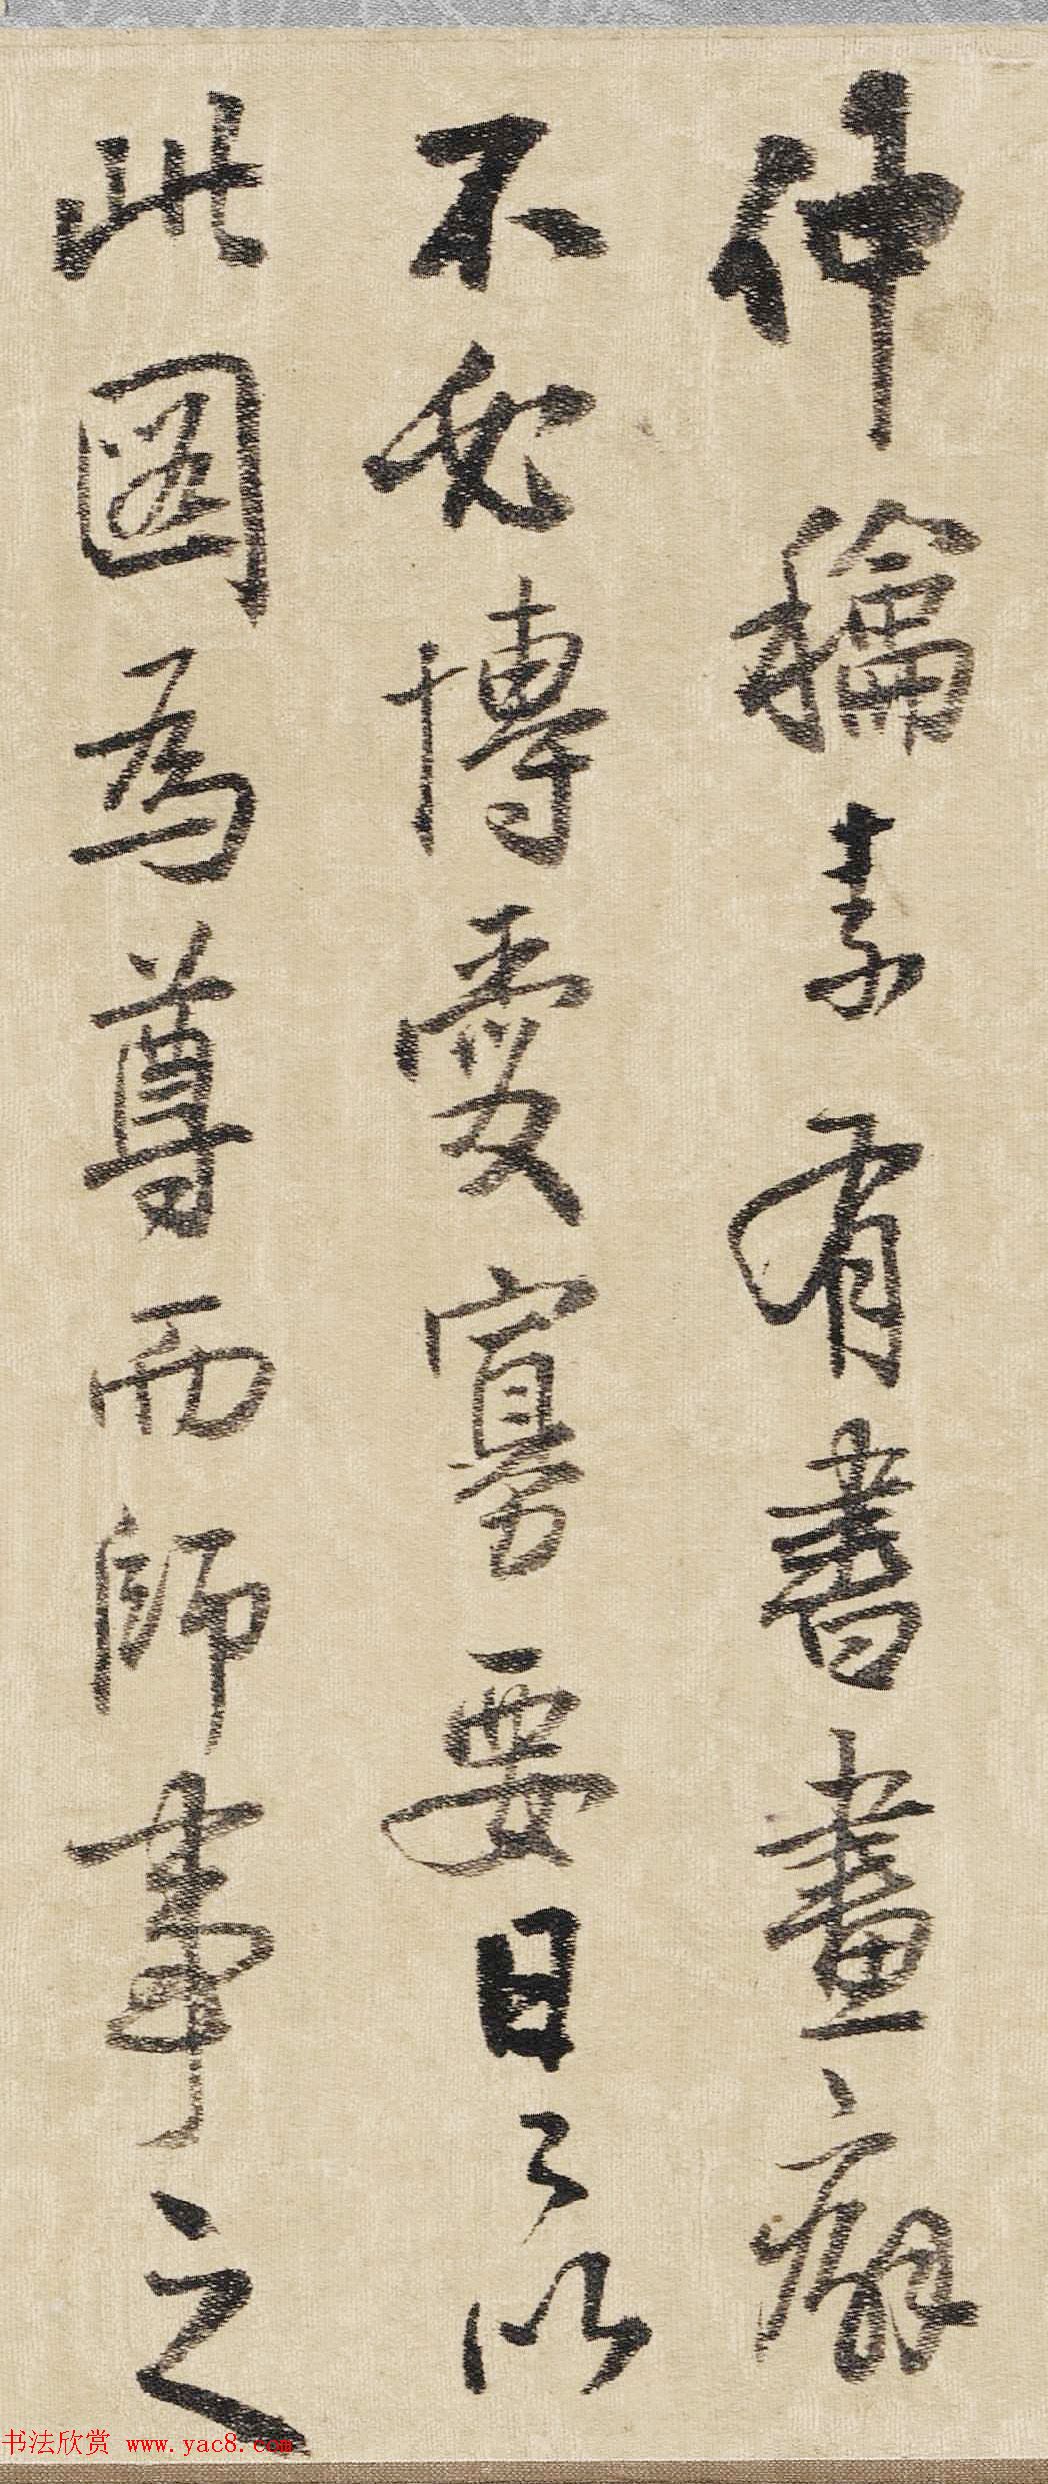 仲素有書畫癖
不免博愛寡要日々以
此圖為尊而師事之
书法欣赏 www.yac8.com